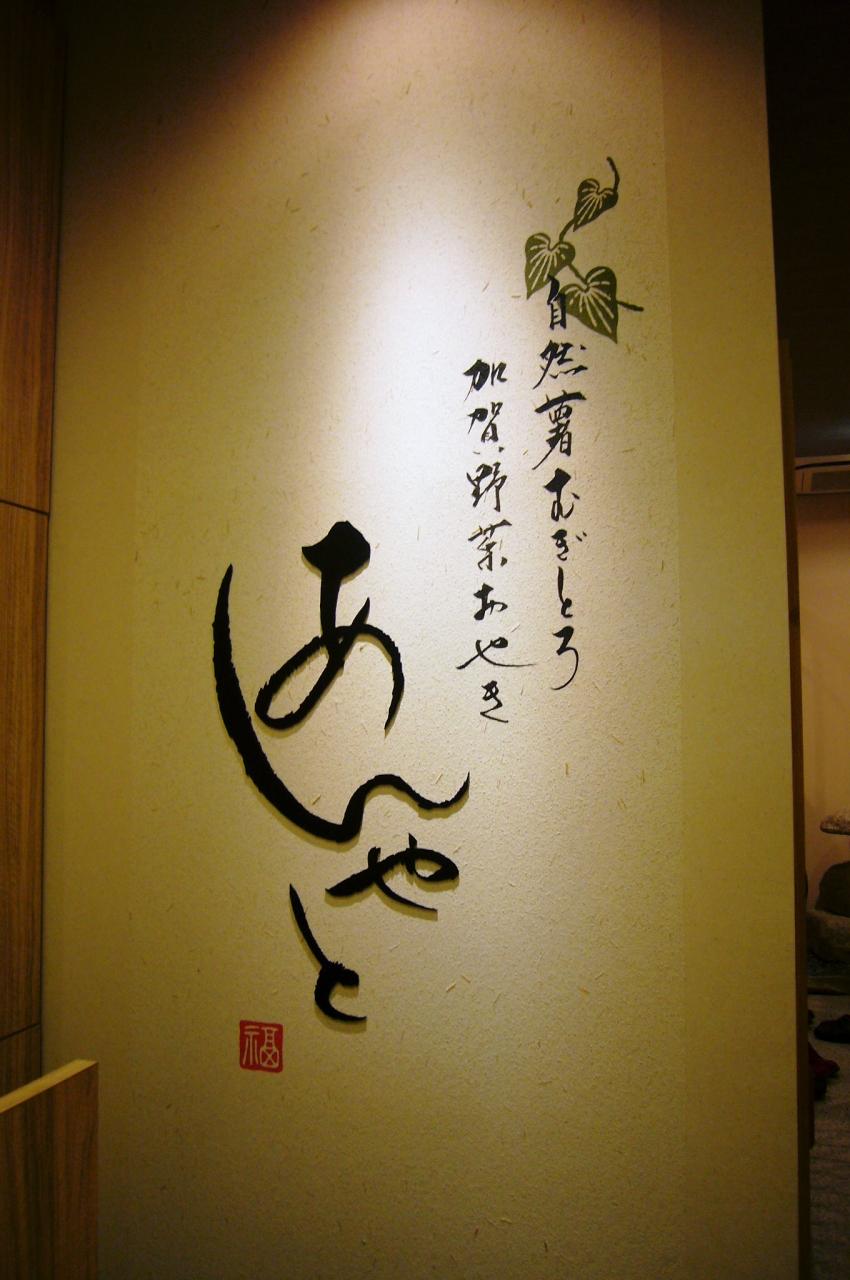 自然薯むぎとろ
加賀野菜おやき
あんやと
福